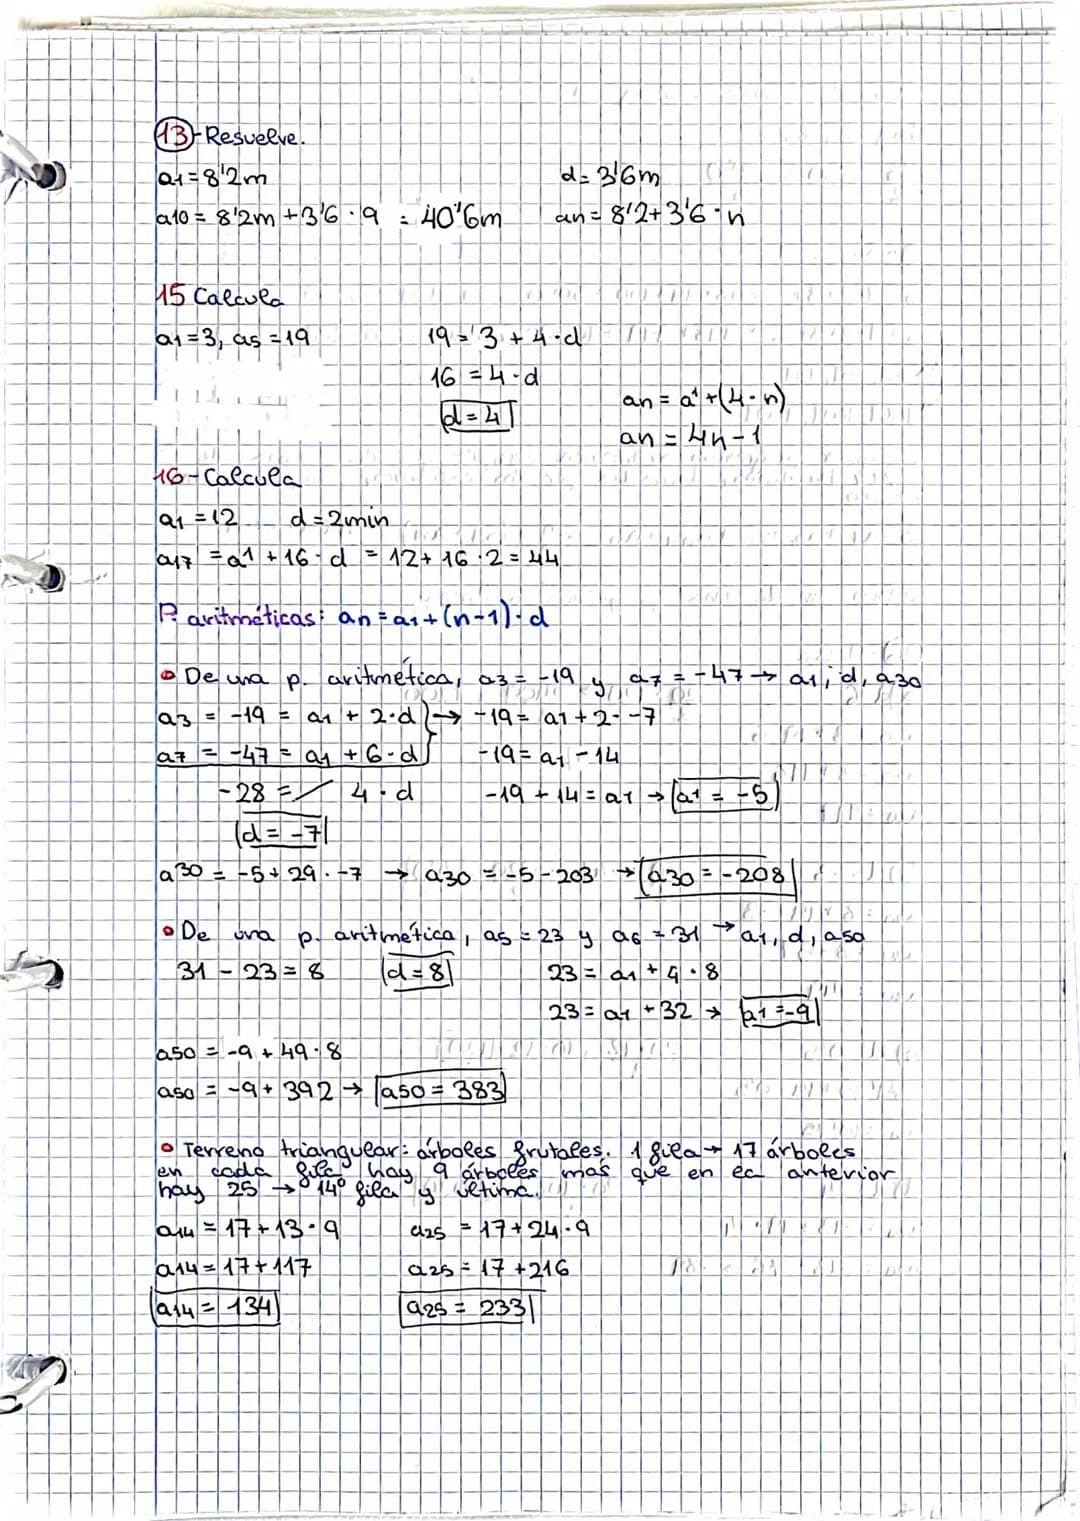 13-Resuelve.
a1=8'2m d=3'6m
a10 = 8'2m +3'6 · 9 = 40'6m an = 8'2+3'6·n
15 Calcula
a1=3, a5=19 19 = 3 + 4·d
16 = 4·d
d=4 an = a1+(4·n)
an = 4n-1
16-Calcula
a1=12 d=2min
a17 = a1 + 16·d = 12+16·2=44
P. aritméticas: an=a1+(n-1)·d
• De una p. aritmética, a3=-19 y a7=-47→ a1, d, a30
a3 = -19 = a1 + 2·d }→ -19= a1+2·-7
a7 = -47 = a1 +6·d } -19= a1 -14
-28 = / 4·d -19+14=a1→ a1 = -5
d=-7
a30 = -5+29·-7 → a30 = -5-203 → a30 = -208
• De una p. aritmética, a5=23 y a6=31 → a1, d, a50
31-23=8 d=8 23= a1+4·8
23= a1+32 → a1=-9
a50 = -9+49·8
a50 = -9+392→ a50=383
• Terreno triangular: árboles frutales. 1 fila→ 17 árboles
en cada fila hay 9 árboles más que en la anterior
hay 25 → 14º fila y última.
a14 = 17+13·9 a25 = 17+24·9
a14=17+117 a25=17+216
a14= 134 a25= 233